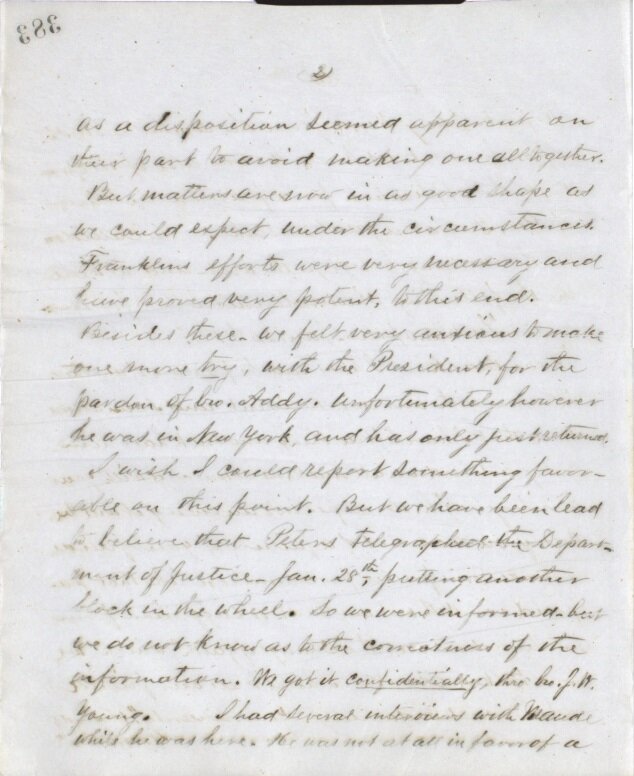 383
2
as a disposition seemed apparent on
their part to avoid making one alltogether.
But matters are now in as good shape as
we could expect, under the circumstances.
Franklins efforts were very necessary and
have proved very potent, to this end.
Besides these - we felt very anxious to make
one more try, with the President, for the
pardon of bro. Addy. Unfortunately however
he was in New York, and has only just returned.
I wish I could report something favor-
able on this point. But we have been lead
to believe that Peters telegraphed the Depart-
ment of Justice - Jan. 28th, putting another
block in the wheel. So we were informed - but
we do not know as to the correctness of the
information. We got it confidentially, thro bro. J. W.
Young. I had several interviews with
while he was here. He was not at all in favor of a